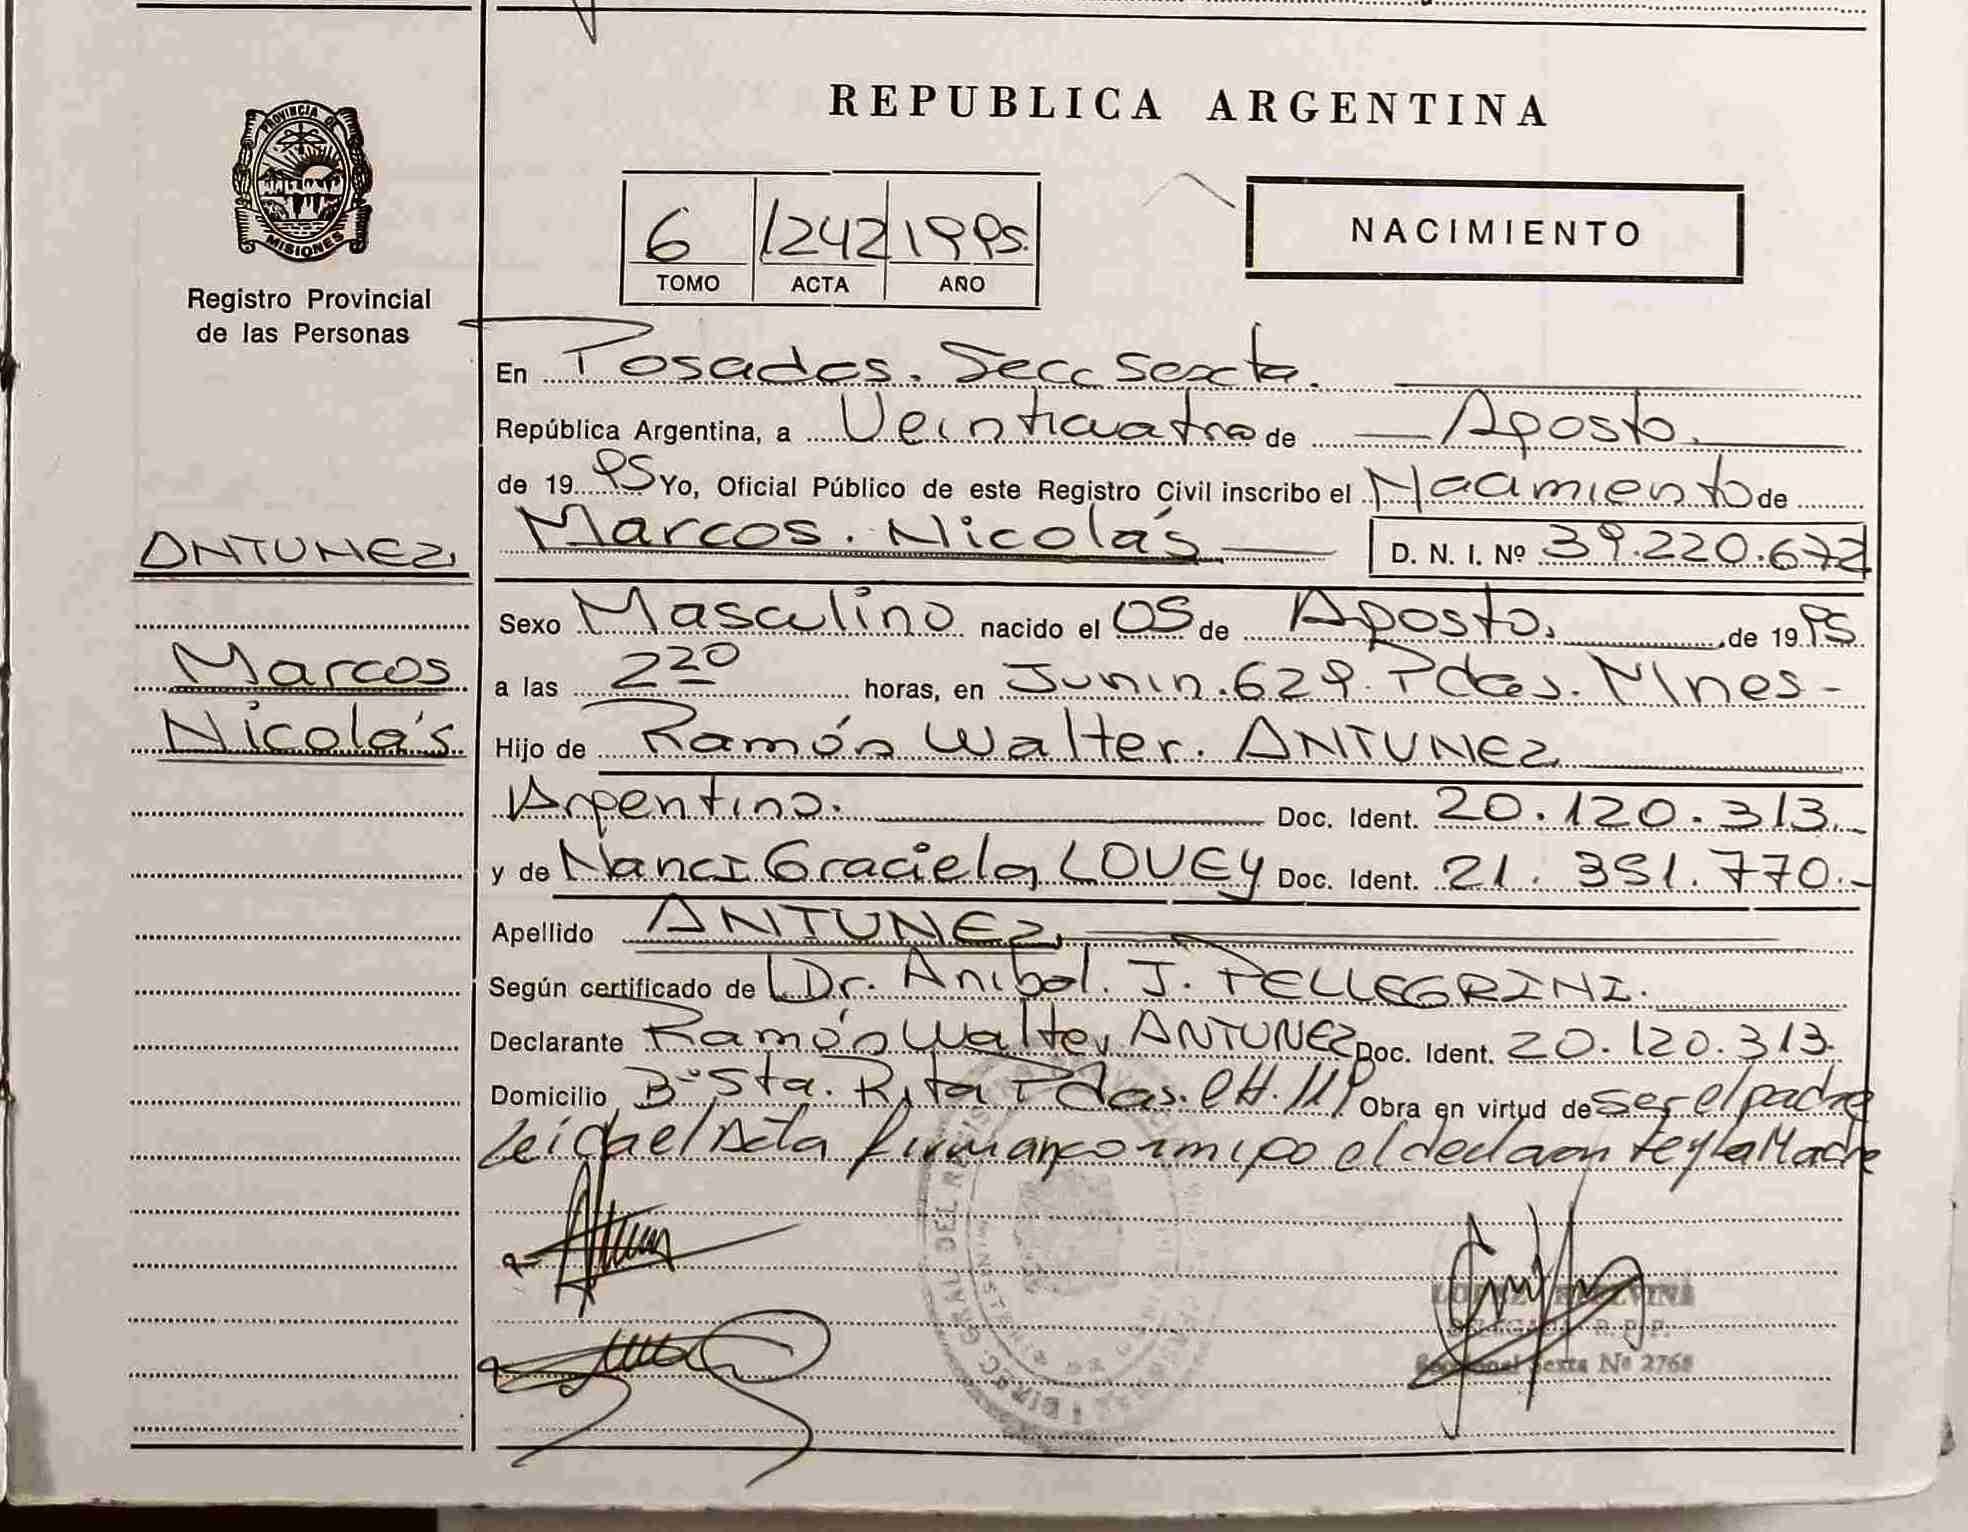 REPUBLICA ARGENTINA
PROVINCIA DE
MISIONES
Registro Provincial
de las Personas
6 1242 1995.
TOMO ACTA AÑO
NACIMIENTO
En Posadas. Secc Sexta.
República Argentina, a Veinticuatro de Agosto.
de 1995 Yo, Oficial Público de este Registro Civil inscribo el Nacimiento de
Marcos. Nicolás D. N. I. Nº 39.220.672
ANTUNEZ
Marcos
Nicolás
Sexo Masculino nacido el 05 de Agosto. de 1995
a las 2 20 horas, en Junin.629.Pdas. Mnes-
Hijo de Ramón Walter. ANTUNEZ
Argentino. Doc. Ident. 20.120.313.-
y de Nanci Graciela LOVEY Doc. Ident. 21.351.770.-
Apellido ANTUNEZ
Según certificado de Dr. Anibal. J. PELLEGRINI.
Declarante Ramón Walter ANTUNEZ Doc. Ident. 20.120.313.
Domicilio Bº Sta. Rita Pdas. CH.119 Obra en virtud de ser el padre
Leida el Acta firman conmigo el declarante y la Madre
DELEGADA R. P. P.
Seccional Sexta Nº 2768